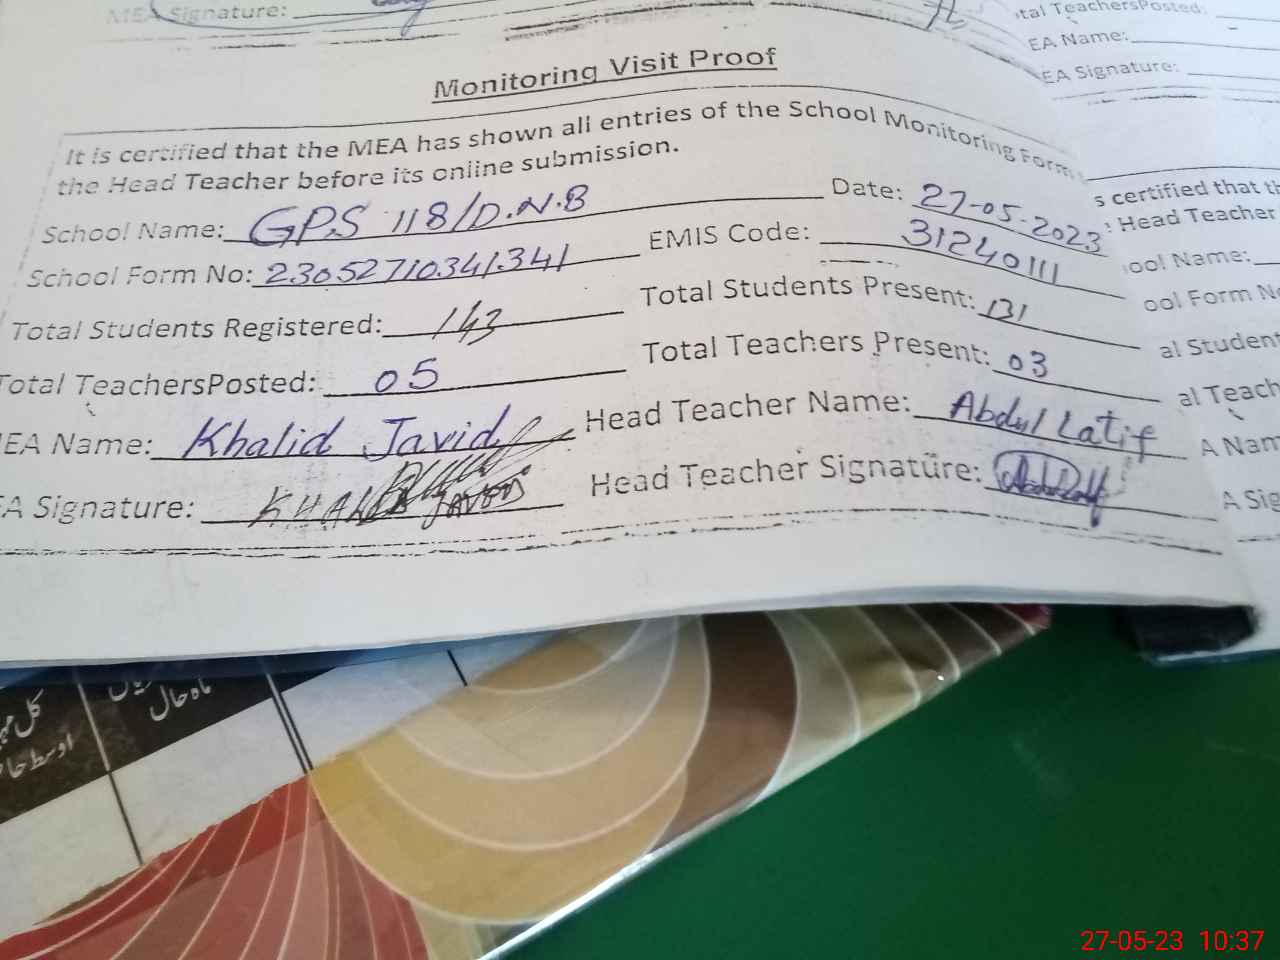 MEA Signature:
Monitoring Visit Proof
It is certified that the MEA has shown all entries of the School Monitoring Form
the Head Teacher before its online submission.
School Name: GPS 118/D.N.B Date: 27-05-2023
School Form No: 23052710341341 EMIS Code: 31240111
Total Students Registered: 143 Total Students Present: 131
Total TeachersPosted: 05 Total Teachers Present: 03
EA Name: Khalid Javid Head Teacher Name: Abdul Latif
A Signature: KHALID JAVED Head Teacher Signature:
tal TeachersPosted:
EA Name:
EA Signature:
s certified that th
Head Teacher
ool Name:
ool Form No
al Student
al Teach
A Nam
A Sig
ماہ حال
کل
اوسط حا
27-05-23 10:37